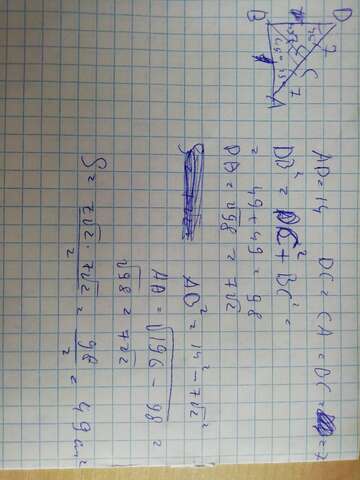 B D
7
45°
C 7
A
AD = 14 DC = CA = BC = 7
DB² = DC² + BC² =
= 49 + 49 = 98
DB = √98 = 7√2
AB² = 14² - 7√2²
AB = √196 - 98 =
√98 = 7√2
S = 7√2 · 7√2 / 2 = 98 / 2 = 49 см²